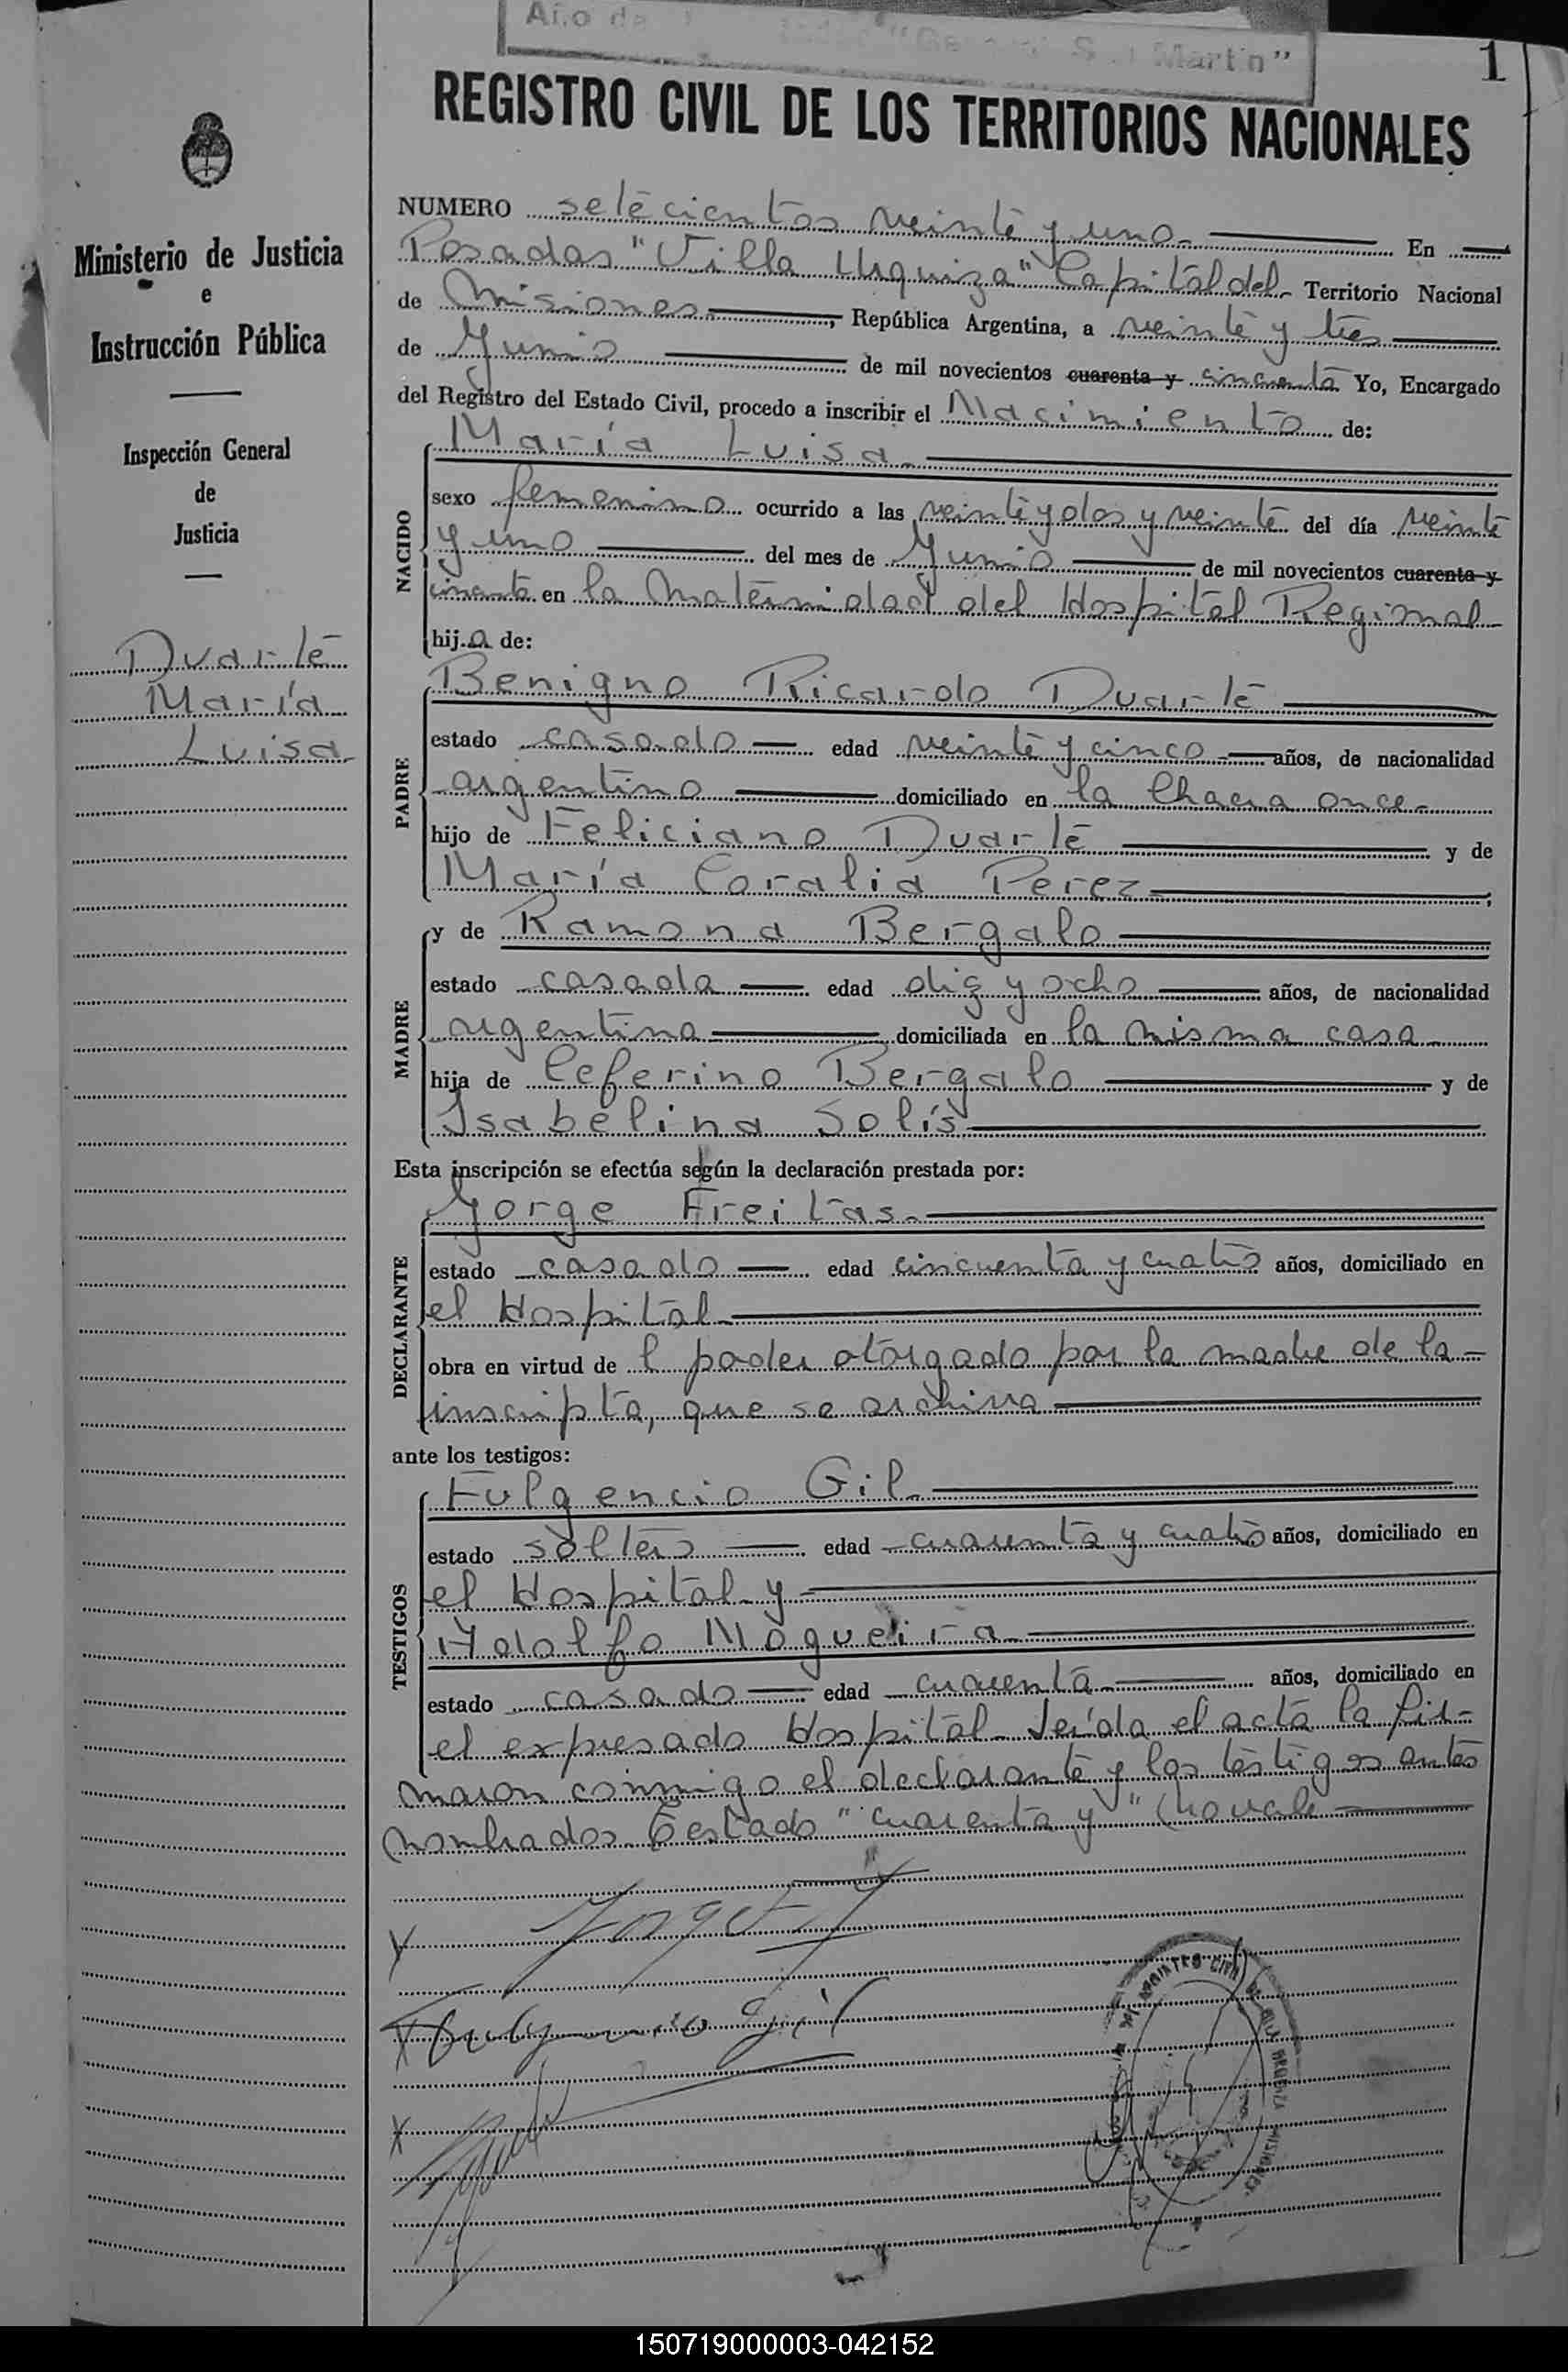 Año de "General San Martín"
1
REGISTRO CIVIL DE LOS TERRITORIOS NACIONALES
Ministerio de Justicia
e
Instrucción Pública
Inspección General
de
Justicia
Duarte
María
Luisa
NUMERO setecientos veinte y uno. En
Posadas "Villa Urquiza" Capital del Territorio Nacional
de Misiones, República Argentina, a veinte y tres
de Junio de mil novecientos cuarenta y cincuenta Yo, Encargado
del Registro del Estado Civil, procedo a inscribir el Nacimiento de:
NACIDO
María Luisa
sexo femenino ocurrido a las veinte y dos y veinte del día veinte
y uno del mes de Junio de mil novecientos cuarenta y
cincuenta en la Maternidad del Hospital Regional
hija de:
PADRE
Benigno Ricardo Duarte
estado casado edad veinte y cinco años, de nacionalidad
argentino domiciliado en la Chacra once
hijo de Feliciano Duarte y de
María Coralia Perez;
MADRE
y de Ramona Bergalo
estado casada edad diez y ocho años, de nacionalidad
argentina domiciliada en la misma casa
hija de Ceferino Bergalo y de
Isabelina Solís
Esta inscripción se efectúa según la declaración prestada por:
DECLARANTE
Jorge Freitas
estado casado edad cincuenta y cuatro años, domiciliado en
el Hospital
obra en virtud de l poder otorgado por la madre de la
inscripta, que se archiva
ante los testigos:
TESTIGOS
Fulgencio Gil
estado soltero edad cuarenta y cuatro años, domiciliado en
el Hospital y
Adolfo Nogueira
estado casado edad cuarenta años, domiciliado en
el expresado Hospital. Leída el acta la fir-
maron conmigo el declarante y los testigos antes
nombrados. Testado "cuarenta y" No vale
Fulgencio Gil
REGISTRO CIVIL
MISIONES
150719000003-042152